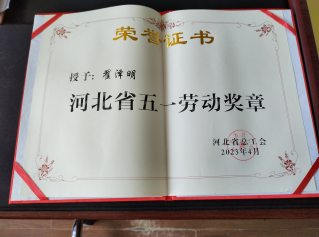 荣誉证书
授予：翟泽明
河北省五一劳动奖章
河北省总工会
2023年4月